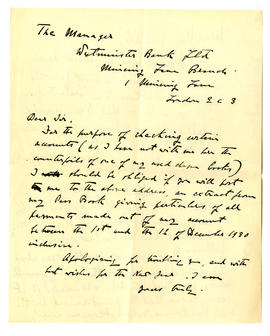 The Manager
Westminster Bank Ltd
Mincing Lane Branch.
1 Mincing Lane
London E C 3
Dear Sir.
For the purpose of checking certain
accounts (as I have not with me here the
counterfoils of one of my used cheque books)
I should be obliged if you will post
me to the above address, an extract from
my Pass Book giving particulars of all
payments made out of my account
between the 1st and the 12 of December 1930
inclusive.
Apologising for troubling you, and with
best wishes for the New Year. I am
yours truly.